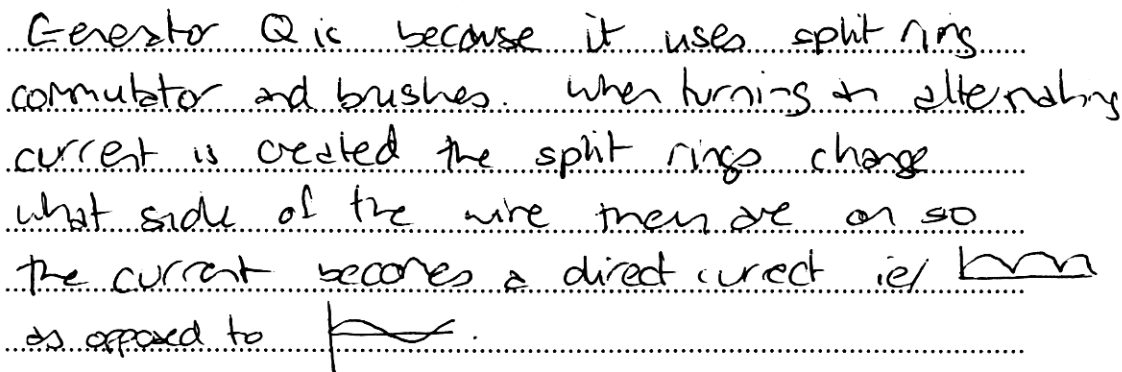 Generator Q is because it uses split ring
commutator and brushes. When turning an alternating
current is created the split rings change
what side of the wire they are on so
the current becomes a direct curect ie/
as opposed to .